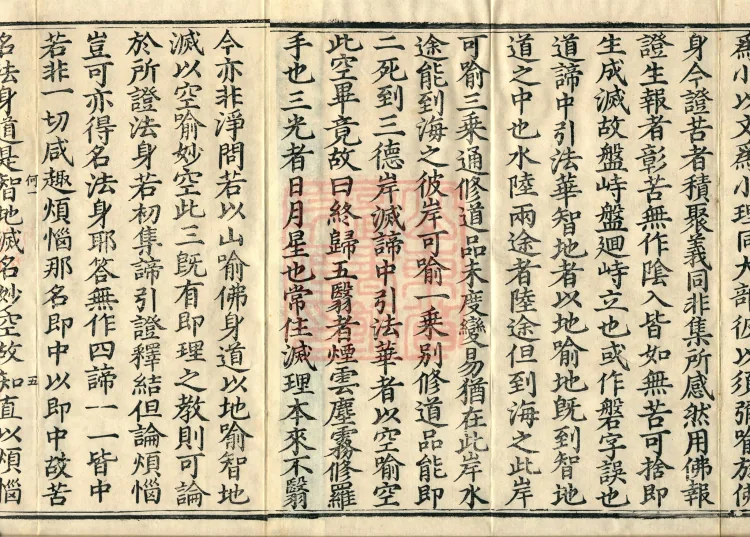 羅小以文羅小理同大部彼以須彌喻於佛
身今證苦者積聚義同非集所感然用佛報
證生報者彰苦無作陰入皆如無苦可捨即
生成滅故盤峙盤廻峙立也或作磐字誤也
道諦中引法華智地者以地喻地既到智地
道之中也水陸兩途者陸途但到海之此岸
可喻三乘通修道品未度變易猶在此岸水
途能到海之彼岸可喻一乘別修道品能即
二死到三德岸滅諦中引法華者以空喻空
此空畢竟故曰終歸五翳者煙雲塵霧修羅
手也三光者日月星也常住滅理本來不翳
今亦非淨問若以山喻佛身道以地喻智地
滅以空喻妙空此三既有即理之教則可論
於所證法身若初集諦引證釋結但論煩惱
豈可亦得名法身耶答無作四諦一一皆中
若非一切咸趣煩惱那名即中以即中故苦
何一
五
名法身道是智地滅名妙空故知直以煩惱